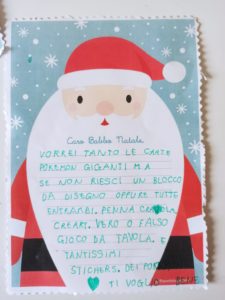 Caro Babbo Natale
VORREI TANTO LE CARTE
POKEMON GIGANTI MA
SE NON RIESCI UN BLOCCO
DA DISEGNO OPPURE TUTTE
ENTRAMBI. PENNA
CREART. VERO O FALSO
GIOCO DA TAVOLA. E
TANTISSIMI
STICHERS. DEI POK
TI VOGLIO BENE